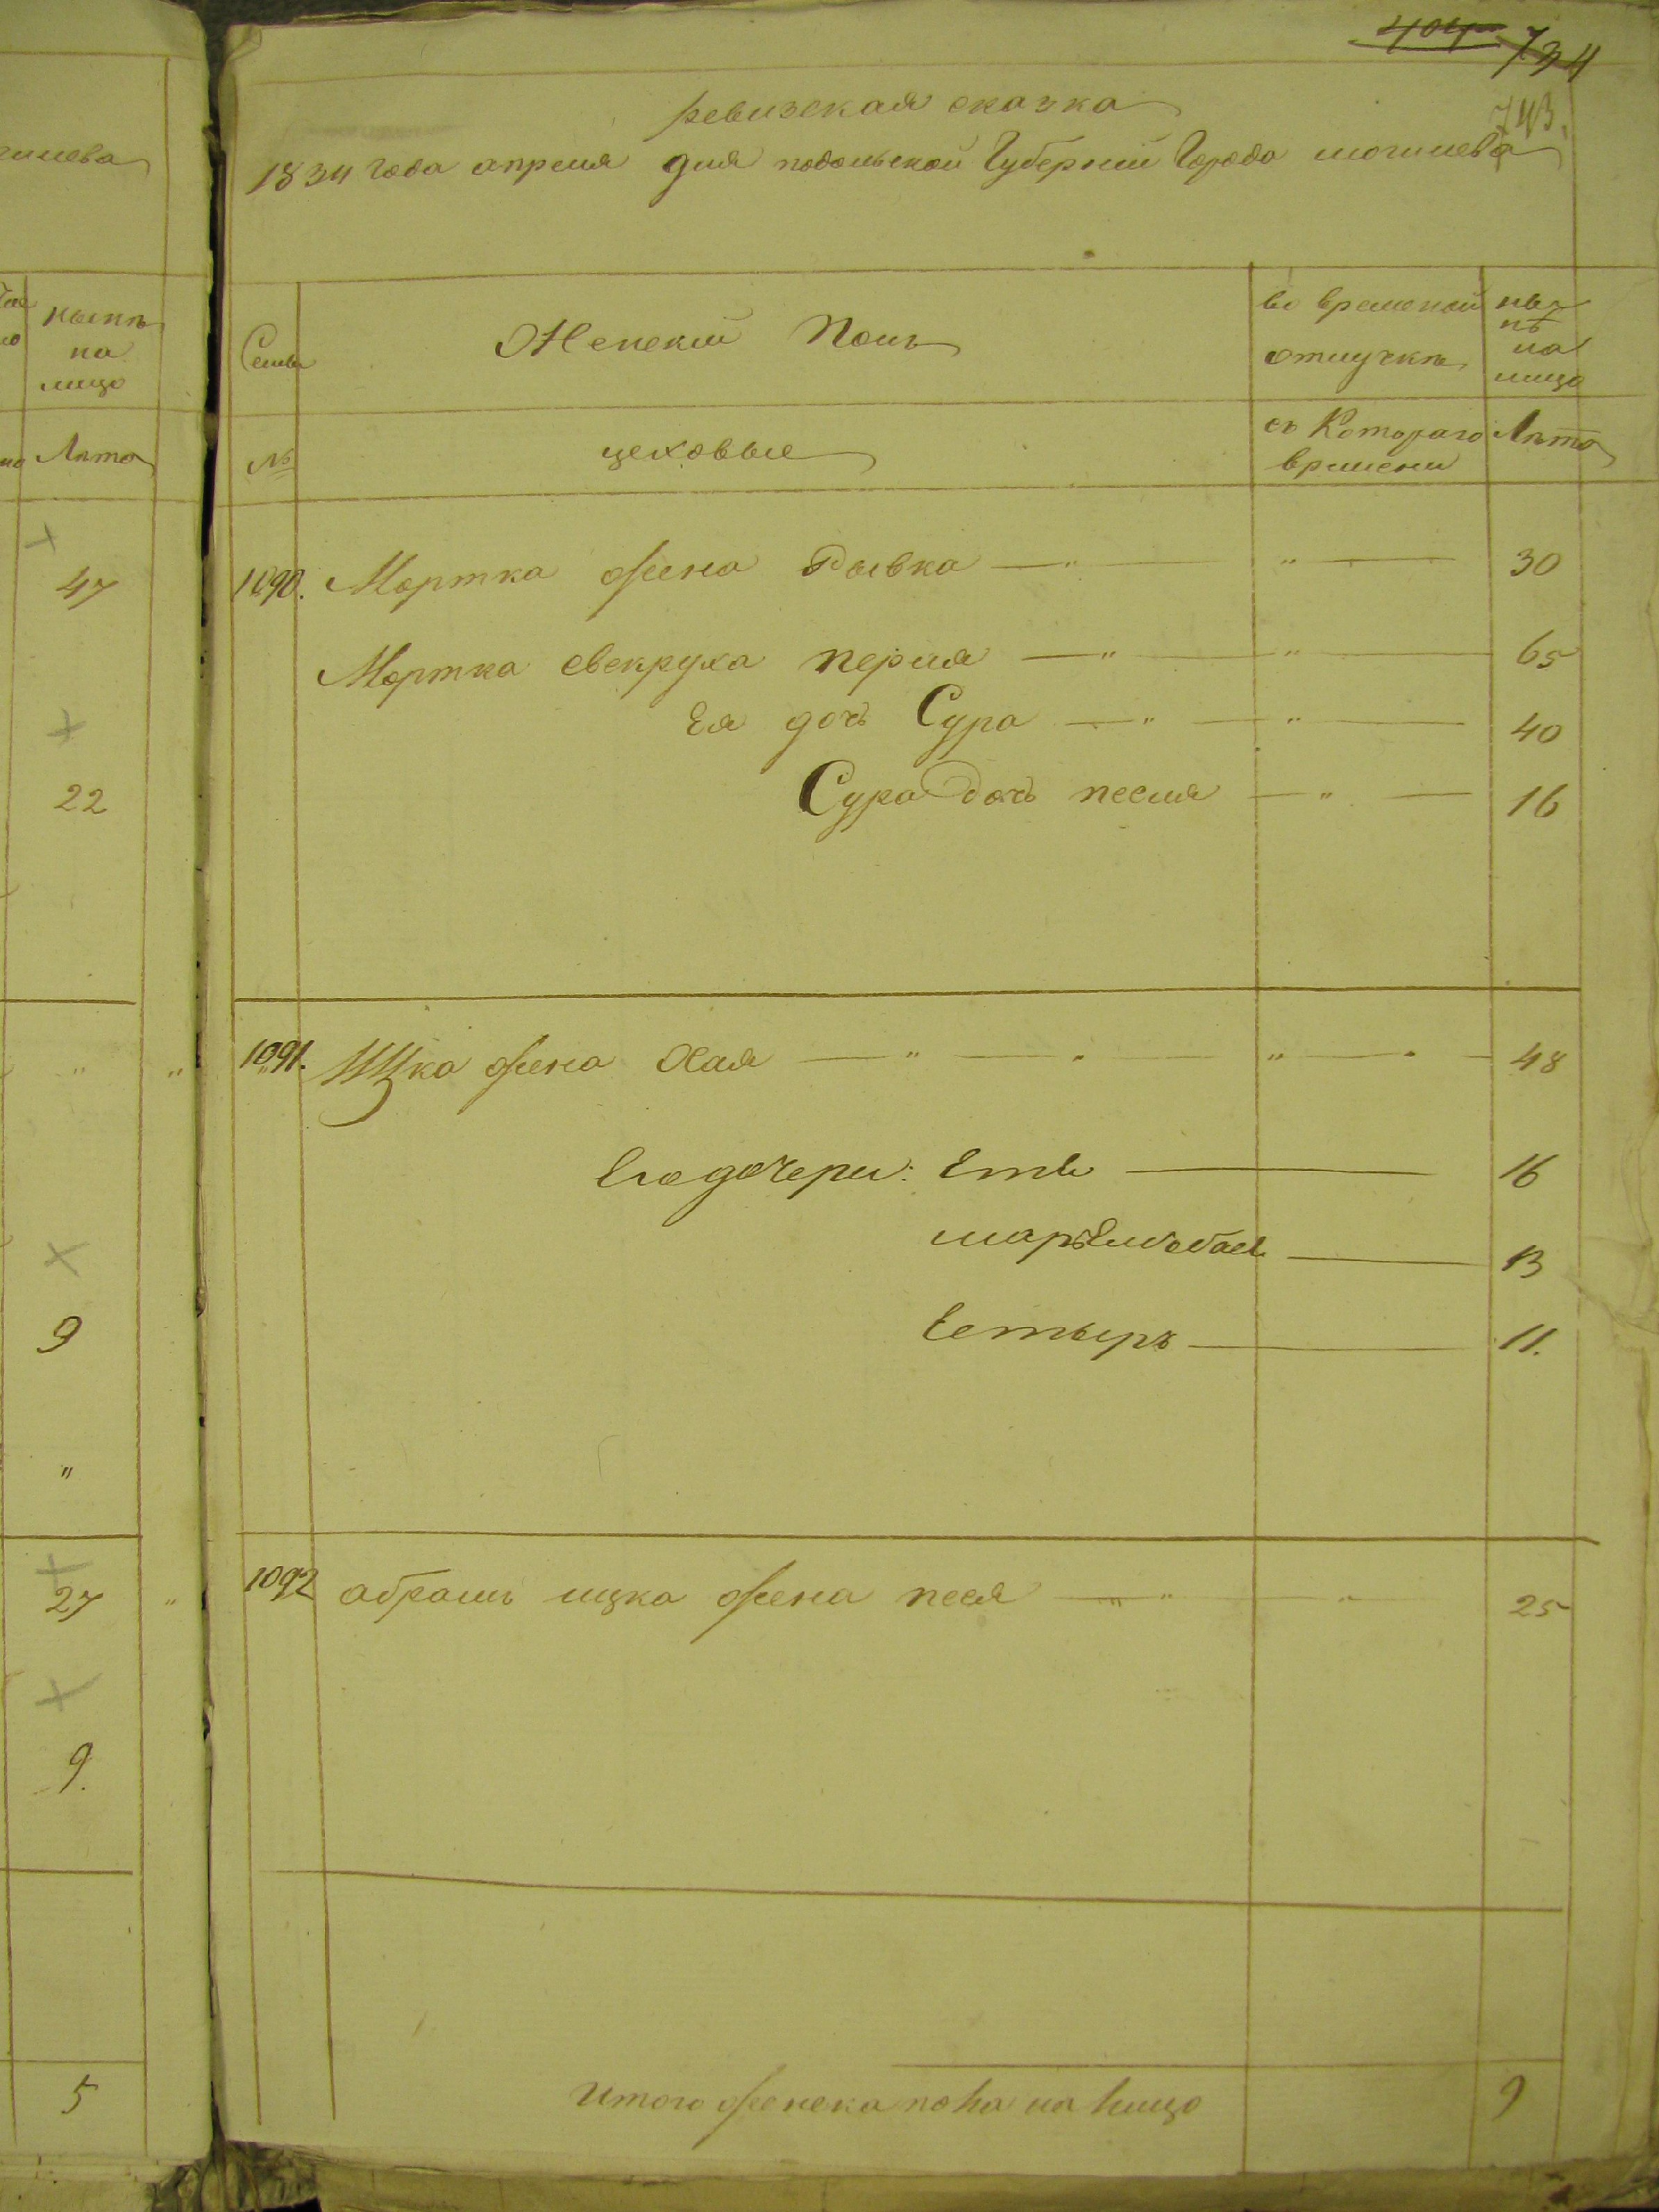 гилева
ныне
на
лицо
Лета
47
22
9
"
27
9.
5
404 734
743.
ревизская сказка
1834 года апреля дня подольской Губернии Города могилева
Семьи
Женский Полъ
во временной
отлучке
ны
нѣ
на
лицо
№
цеховые
съ Котораго
времени
Лета
1090. Мортка жена Рывка — " — " — 30
Мортка свекруха перля — " — " — 65
Ея дочь Сура — " — " — 40
Сура дочь песля — " — 16
1091. Ицка жена Хая — " — " — 48
Его дочери: Етя — 16
13
Естыръ — 11.
1092 абрамъ ицка жена песя — " — " 25
Итого женска пола на лицо 9